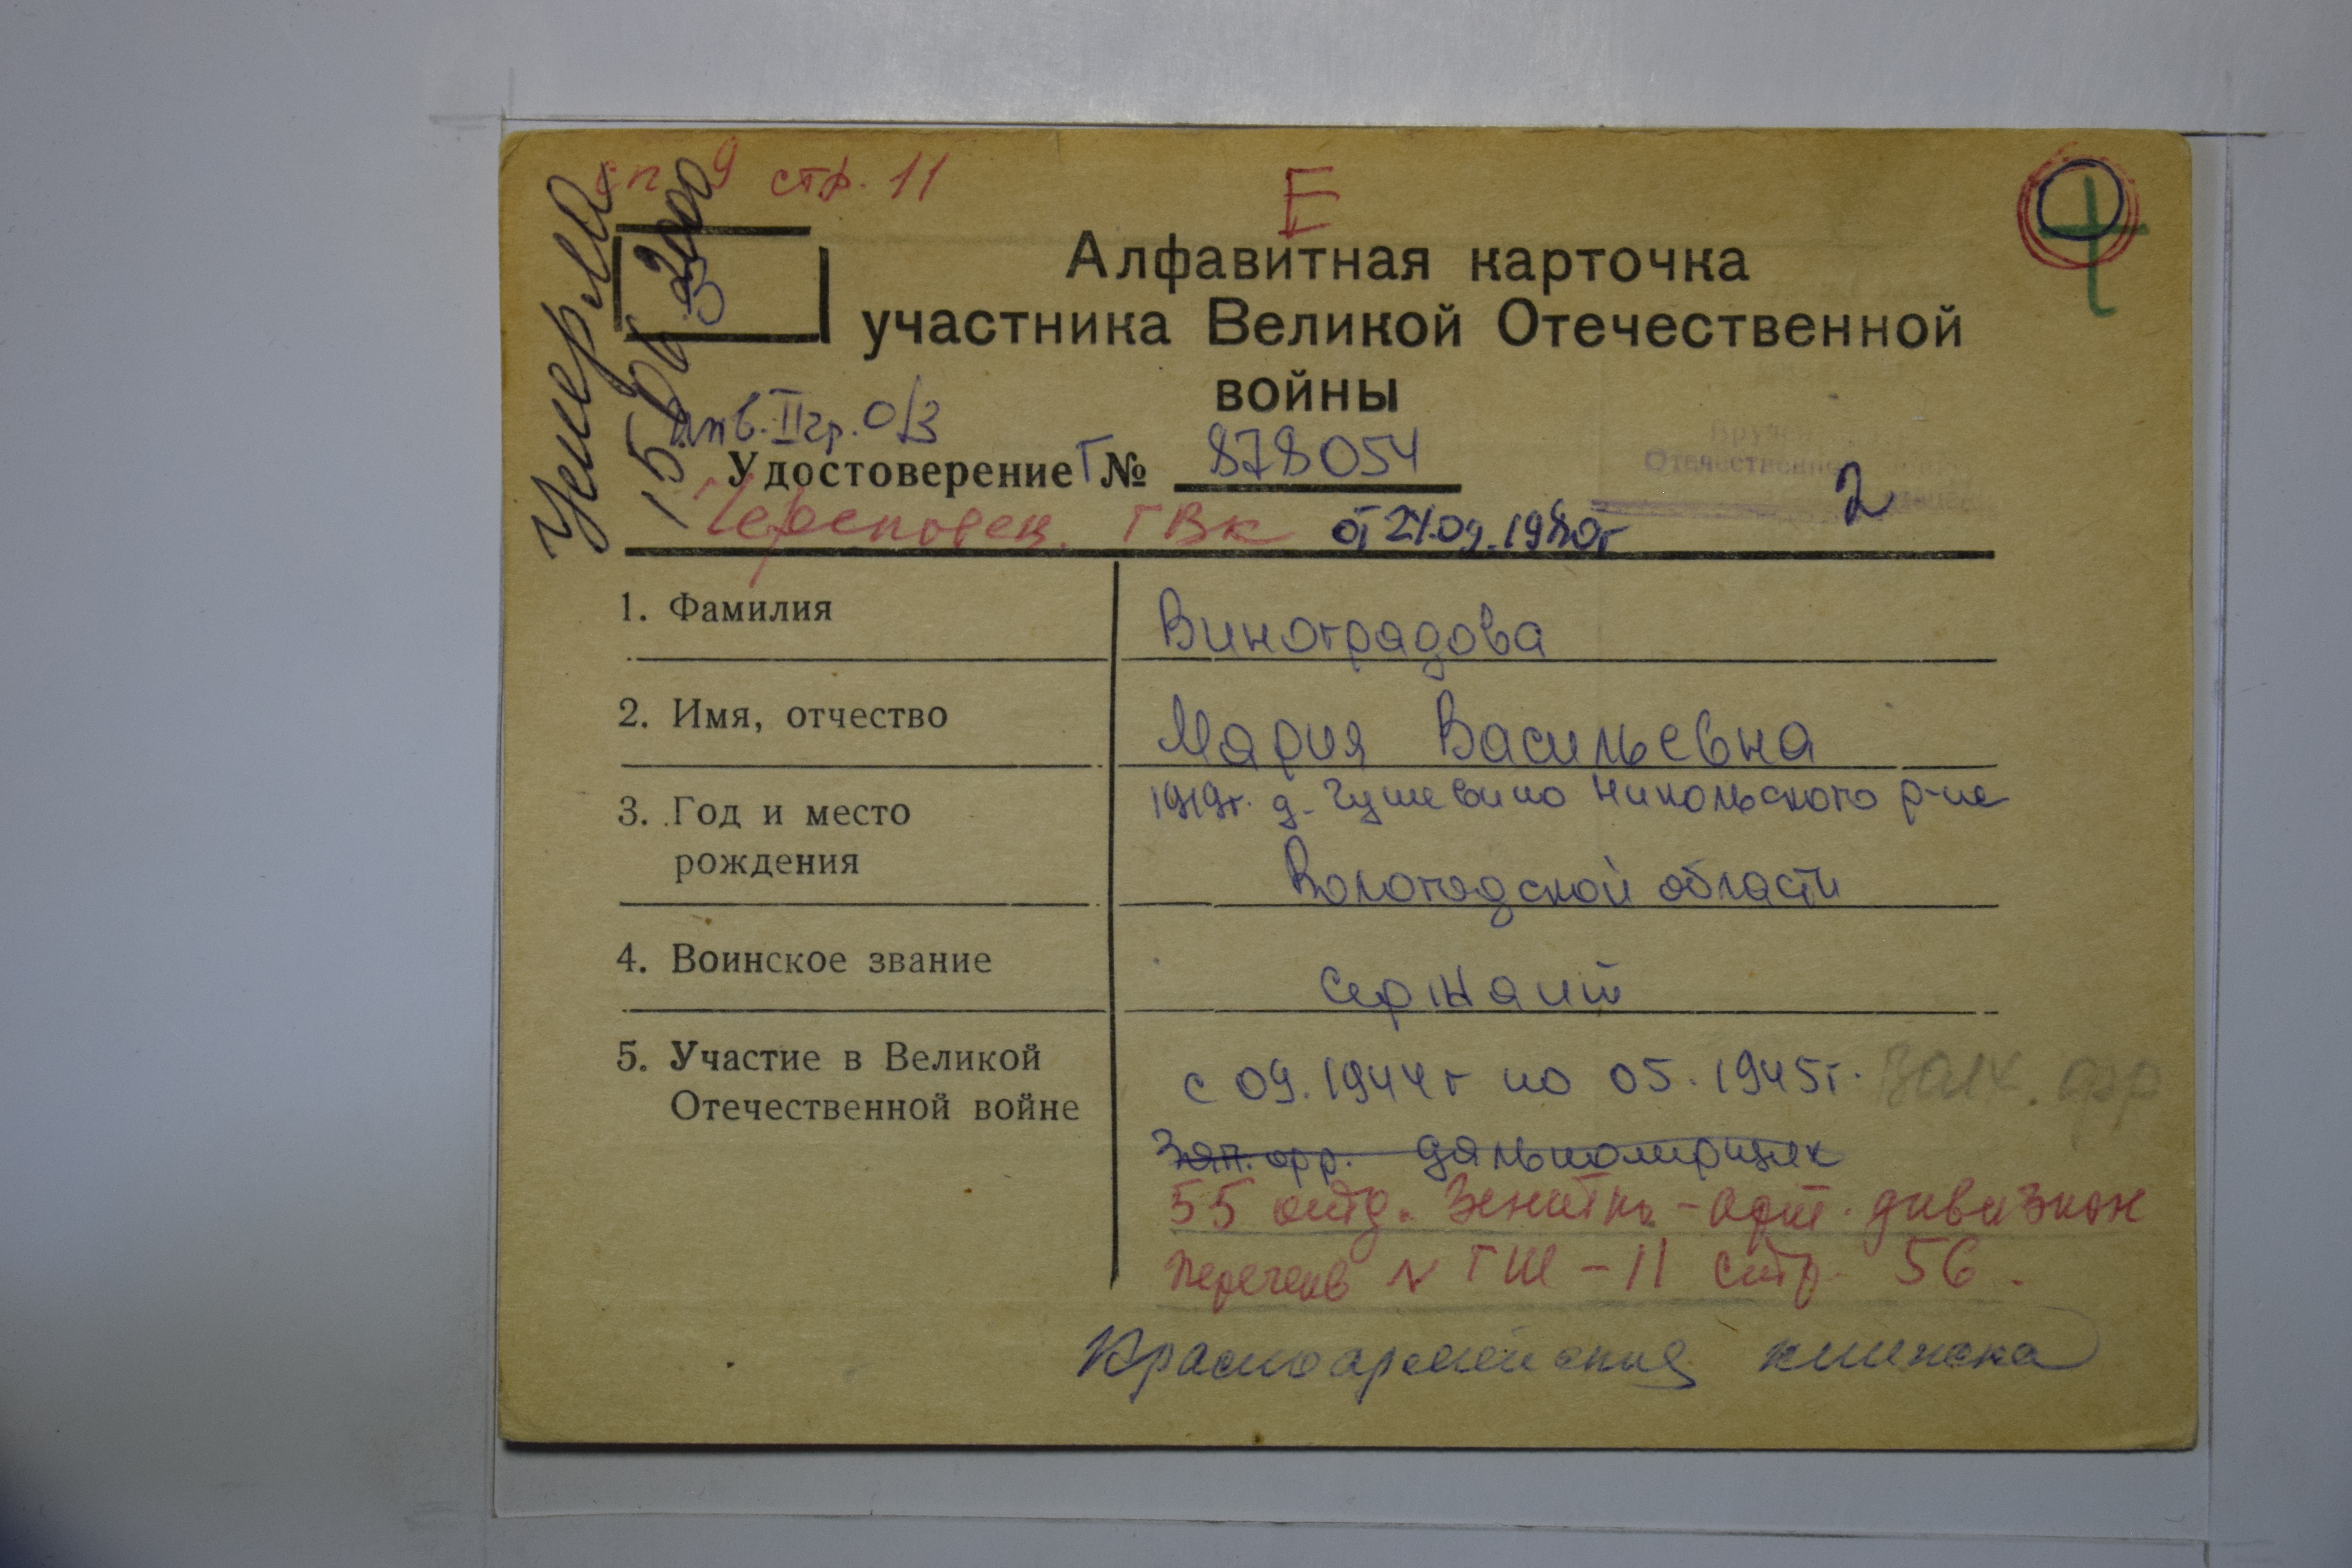 сп 9 стр. 11
Е
Умерла
15.01.2000
3
Алфавитная карточка
участника Великой Отечественной
войны
инв. II гр. О/З
Удостоверение Г № 878054
2
Череповец. ГВК от 24.09.1980г
1. Фамилия
Виноградова
2. Имя, отчество
Мария Васильевна
3. Год и место
рождения
1919г. д. Гушевино Никольского р-на
Вологодской области
4. Воинское звание
сержант
5. Участие в Великой
Отечественной войне
с 09.1944г по 05.1945г. Волх. фр
Зап. фр. дальномерщик
55 отд. Зенитн.-арт. дивизион
перечень N ГШ-11 стр. 56.
Красноармейская книжка